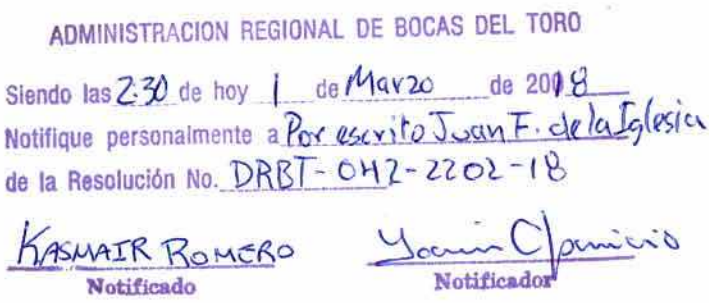 ADMINISTRACION REGIONAL DE BOCAS DEL TORO
Siendo las 2:30 de hoy 1 de Marzo de 2018
Notifique personalmente a Por escrito Juan F. de la Iglesia
de la Resolución No. DRBT-042-2202-18
KASMAIR ROMERO
Notificado Notificador